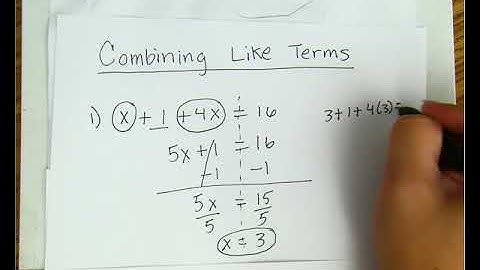 Combining Like Terms
1) x + 1 + 4x = 16
3+1+4(3)=
5x + 1 = 16
-1 -1
5x = 15
5 5
x = 3